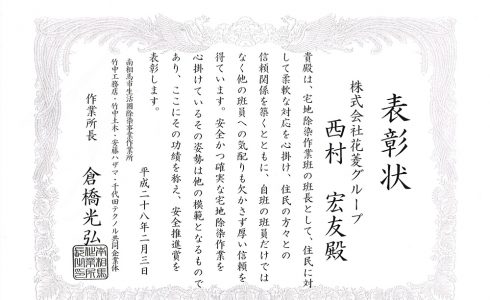 表彰状
株式会社花菱グループ
西村 宏友殿
貴殿は、宅地除染作業班の班長として、住民に対
して柔軟な対応を心掛け、住民の方々との
信頼関係を築くとともに、自班の班員だけでは
なく他の班員への気配りも欠かさず厚い信頼を
得ています。安全かつ確実な宅地除染作業を
心掛けているその姿勢は他の模範となるもので
あり、ここにその功績を称え、安全推進賞を
表彰します。
平成二十八年二月三日
南相馬市生活圏除染事業作業所
竹中工務店・竹中土木・安藤ハザマ・千代田テクノル共同企業体
作業所長 倉橋光弘